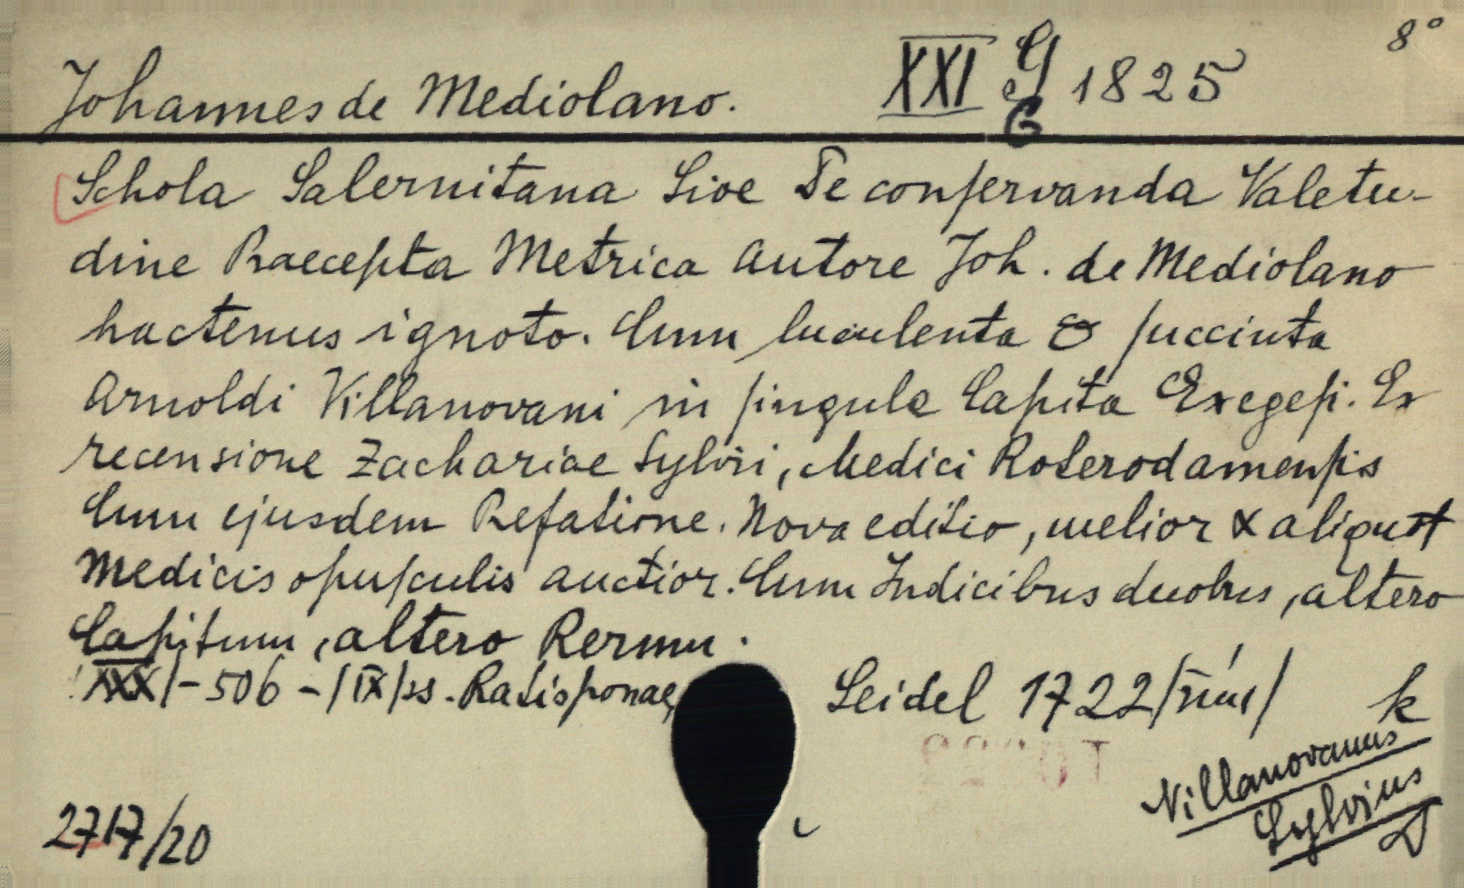 8°
Johannes de Mediolano. XXI G 1825
G
Schola Salernitana Sive De conservanda Valetu-
dine Praecepta Metrica Autore Joh. de Mediolano
hactenus ignoto. Cum luculenta & succinta
Arnoldi Villanovani in singula Capita Exegesi. Ex
recensione Zachariae Sylvii, Medici Roterodamensis
Cum ejusdem Prefatione. Nova editio, melior & aliquot
Medicis opusculis auctior. Cum Indicibus duobus, altero
Capitum, altero Rerum.
/XXX/-506-/IX/ss. Ratisponae, Seidel 1722 k
Villanovanus
Sylvius
2717/20